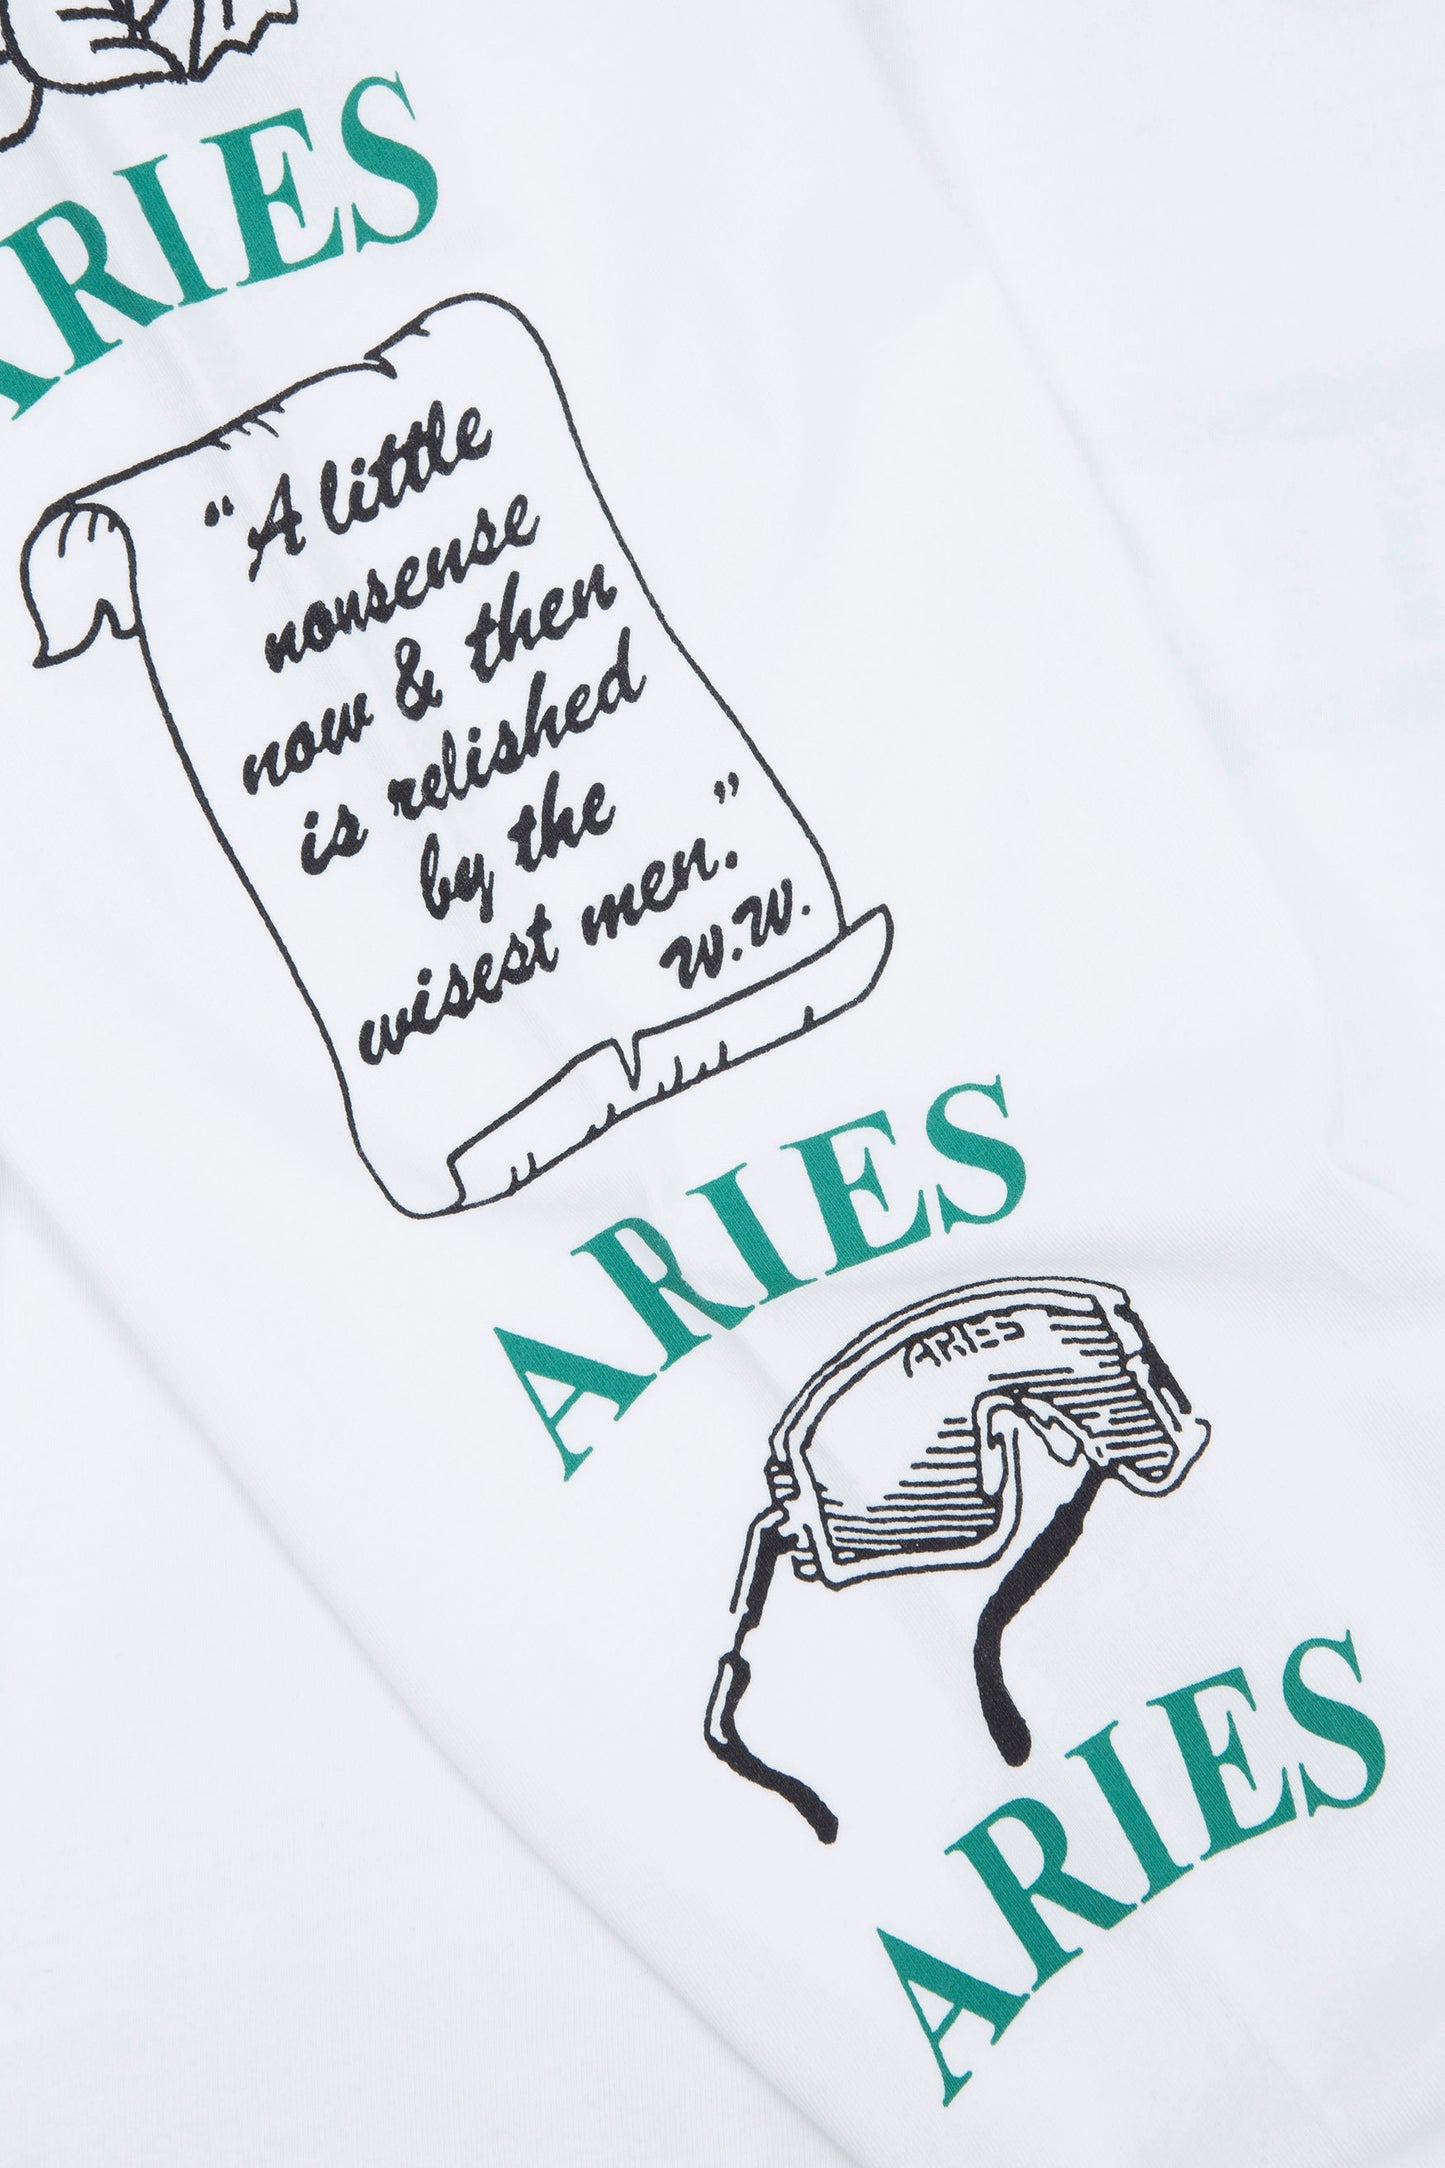 ARIES
“A little
nonsense
now & then
is relished
by the
wisest men.”
W.W.
ARIES
ARIES
ARIES